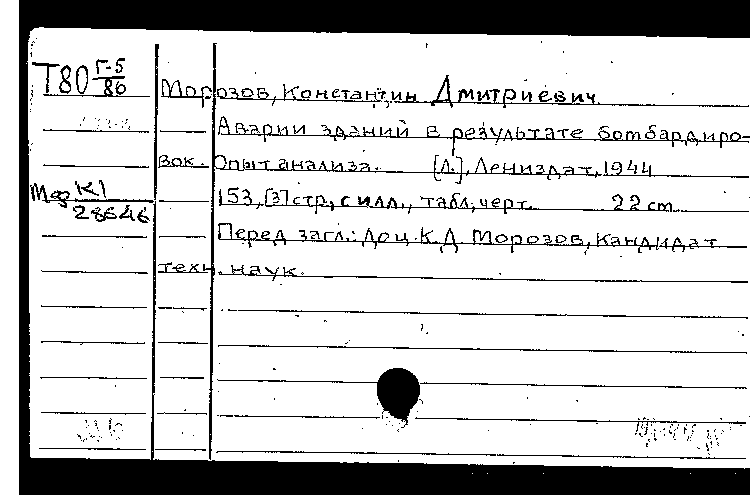 Т80 Г-5
86
Морозов, Константин Дмитриевич
Аварии зданий в результате бомбардиро-
вок. Опыт анализа. [Л.], Лениздат, 1944
К1
28646
153, [3] стр, с илл., табл, черт. 22 cm
Перед загл.: Доц. К.Д. Морозов, кандидат
техн. наук.